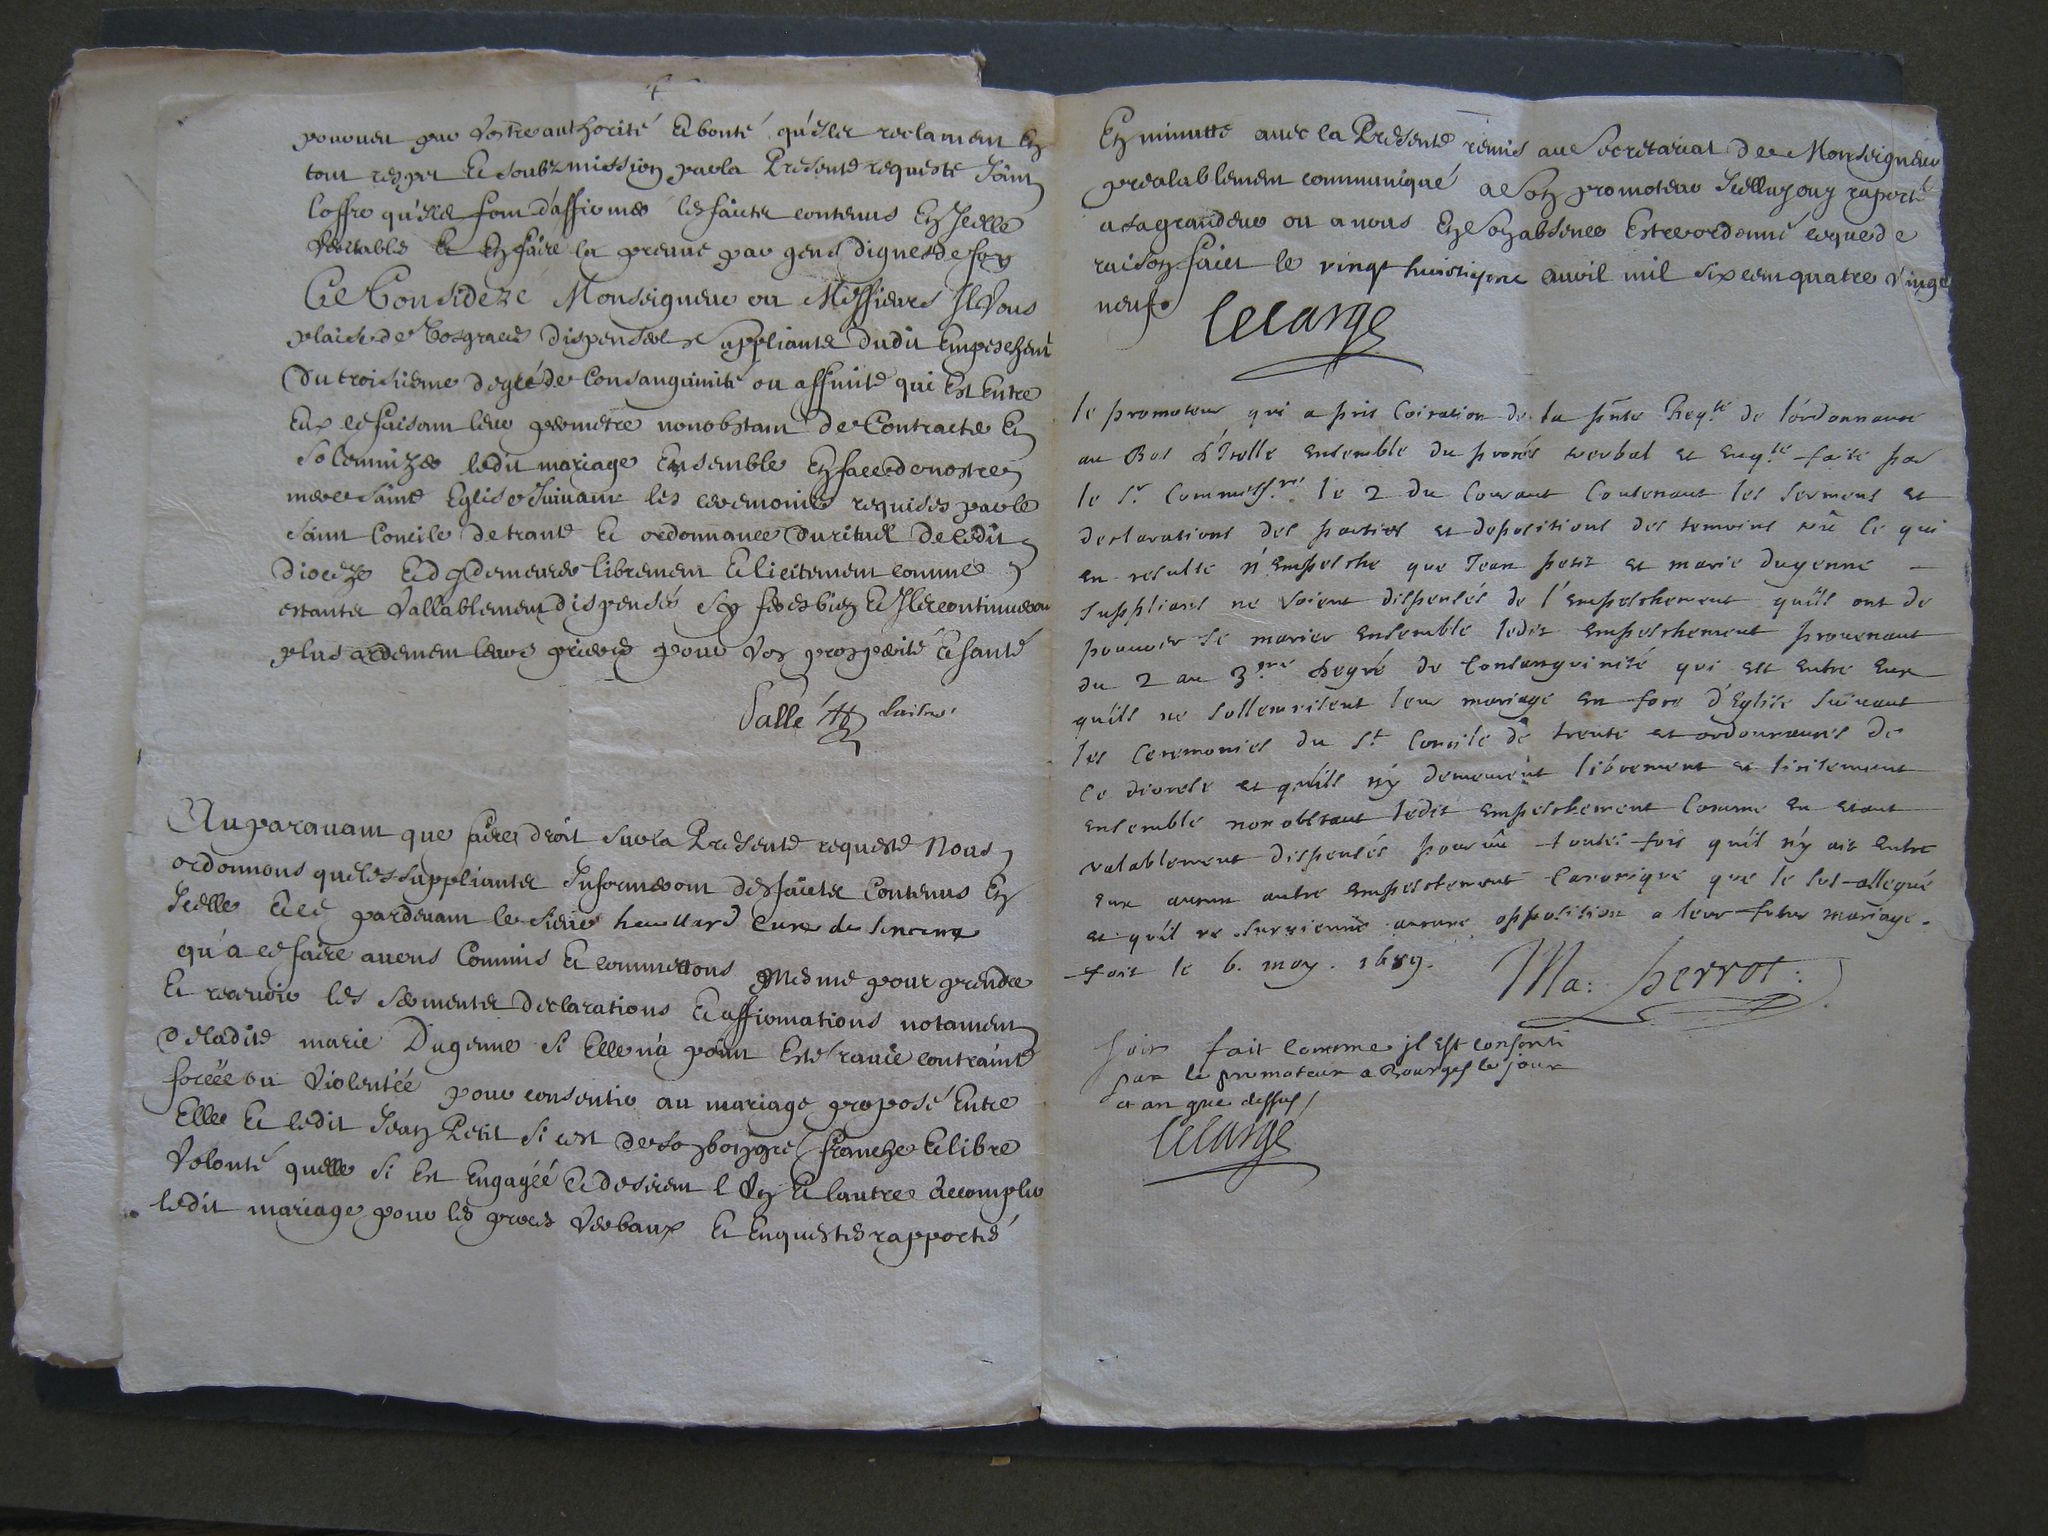 pouven par Vostre authorité Et bonté qu'Iles reclament En
tout respet Et soubzmission parla Presente requeste Joint
Loffre qu'Iles font d'affirmer les faictz contenus En Icelle
Veritable Et En faire la preuve par gens dignes de foy
Ce Consideré Monseigneur ou Messieurs Il Vous
plaise de Vos graces dispenser les suppliantz dudit Empeschemt
Du troisieme degré de Consanguinité ou affinité qui Est Entre
Eux ce faisant leur permetre nonobstant de Contracter Et
Solemnizer ledit mariage Ensemble En face de nostre
mere Sainte Eglise Suivant les ceremonies requises par le
saint Concile de trante Et ordonnance du rituel de cedit
Diocese Et dy demeurer librement Et licitement comme
estantz Vallablement dispensés Sy feres bien Et Iles continueront
plus ardement leurs prieres pour Vos prosperité Et santé
Sallé
Auparavant que faire droit sur la Presente requeste Nous
ordonnons que les suppliantz Informeront des faictz Contenus En
Icelle Et ce pardevant le Sieur heullard Curé de
qu'a ce faire avons Commis Et commettons mesme pour prendre
Et recevoir les sermentz Declarations Et affirmations notament
De ladite marie Dugenne si Elle n'a point Esté ravie contrainte
forcée ou Violentée pour consentir au mariage proposé Entre
Elle Et ledit Jean Petit si cest de son bon gré franche Et libre
Volonté quelle si Est Engagéé Et desirent l Vn Et lautre accomplir
ledit mariage pour les proces Verbaux Et Enquestes rapportés
En minutte avec la Presente remis au Secretariat de Monseigneur
prealablement communiqué a son promoteur Icelluy ouy raporté
a sa grandeur ou a nous En son absence Estre ordonné ce que de
raison faict le vingt huictiesme avril mil six cent quatre vingt
neuf
Lelarge
le promoteur qui a pris Coication de la pnte Reqte de l'ordonnance
au Bas d'Icelle ensemble du procés verbal et enqte faite par
le Sr Commissre le 2 du Courant Contenant les Serments et
declarations des parties et depositions des temoins vû Ce qui
en resulte n'Empesche que Jean petit et marie dugenne
Suppliants ne Soient dispensés de l'empeschement quils ont de
pouvoir Se marier ensemble ledit empeschement provenant
du 2 au 3me degré de Consanguinité qui est entre eux
quils ne Sollemnisent leur mariage en face d'Eglise Suivant
les Ceremonies du St Concile de trente et ordonnances de
Ce diocese et quils n'y demeurent librement et licitement
ensemble nonobstant ledit empeschement Comme en etant
valablement dispensés pourvû toutes fois quil n'y ait entre
eux aucun autre empeschement Canonique que le sus-allegué
et quil ne Survienne aucune opposition a leur futur mariage.
fait le 6. may. 1689.
Ma: perrot:
Soit fait Comme jl Est consenti
par le promoteur a Bourges le jour
et an que dessus
Lelarge